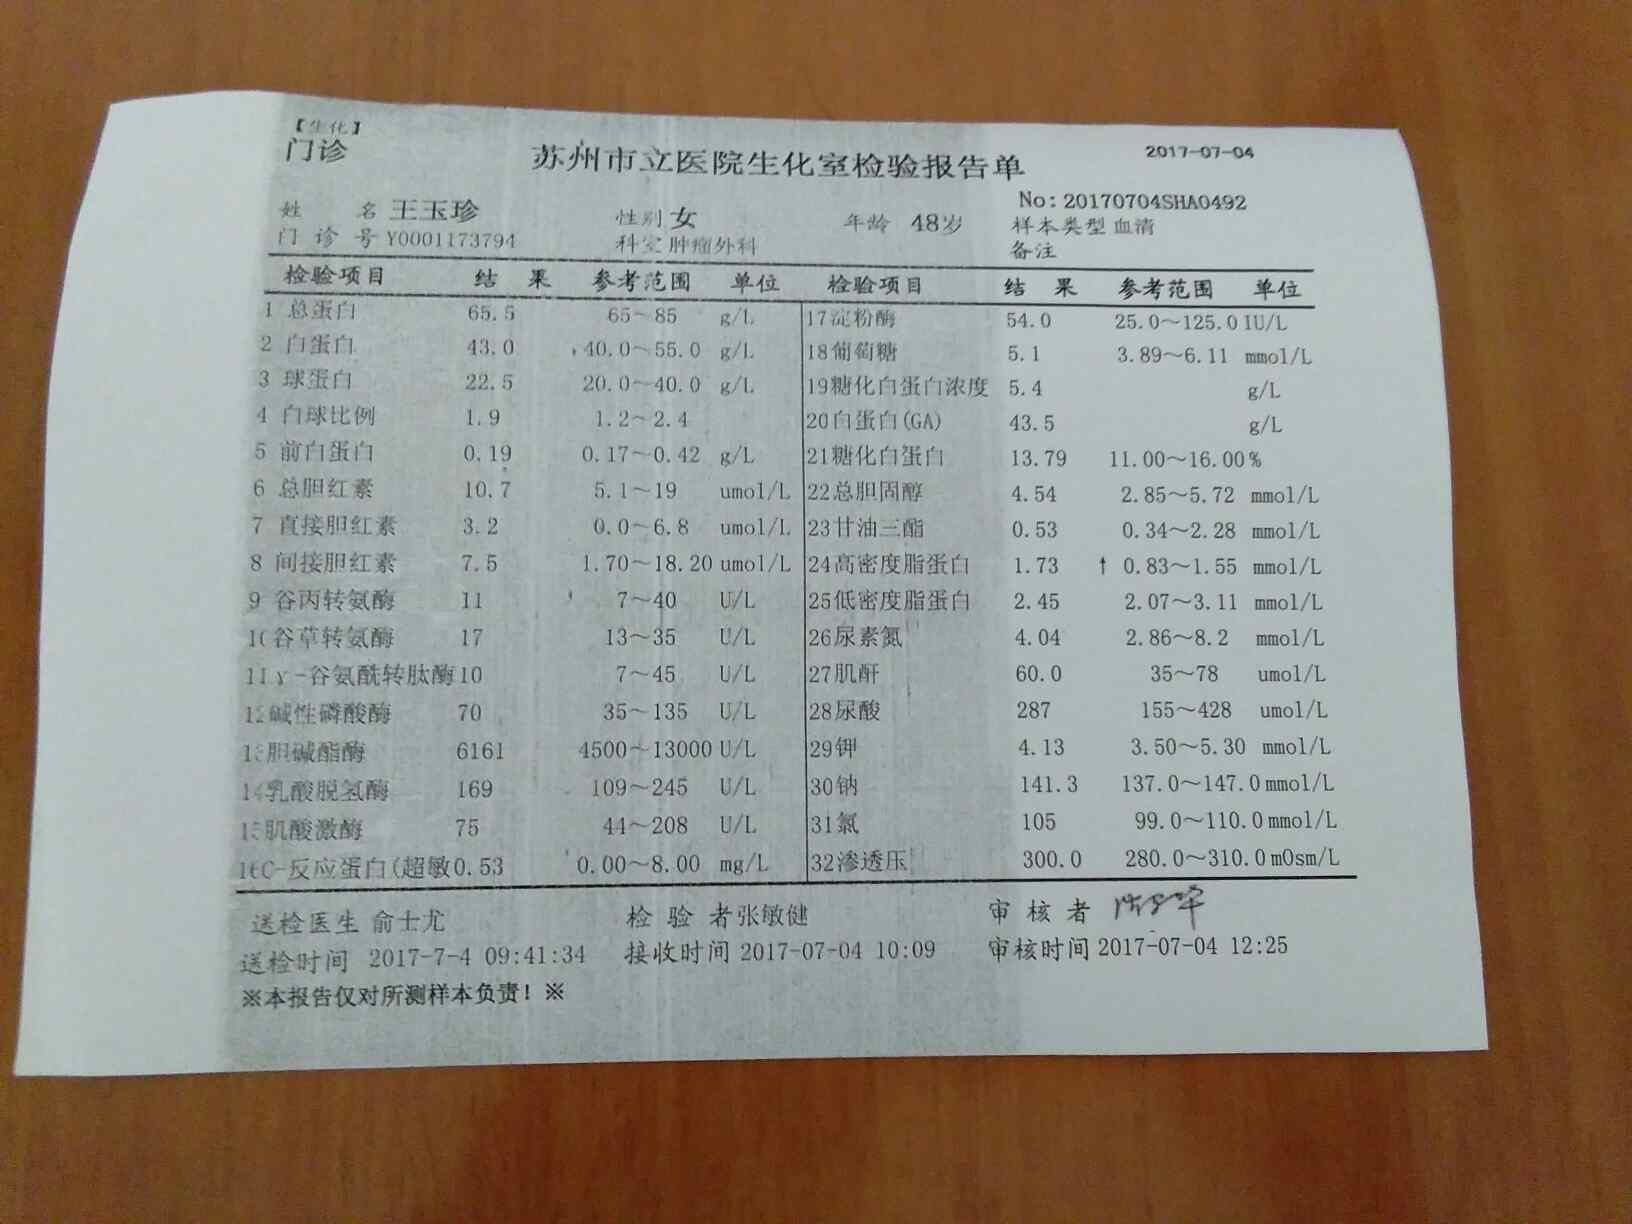 【生化】
门诊
苏州市立医院生化室检验报告单
2017-07-04
No: 20170704SHA0492
姓 名 王玉珍 性别 女 年龄 48岁 样本类型 血清
门 诊 号 Y0001173794 科室 肿瘤外科 备注
检验项目 结 果 参考范围 单位 检验项目 结 果 参考范围 单位
1 总蛋白 65.5 65~85 g/L 17淀粉酶 54.0 25.0~125.0 IU/L
2 白蛋白 43.0 40.0~55.0 g/L 18葡萄糖 5.1 3.89~6.11 mmol/L
3 球蛋白 22.5 20.0~40.0 g/L 19糖化白蛋白浓度 5.4 g/L
4 白球比例 1.9 1.2~2.4 20白蛋白(GA) 43.5 g/L
5 前白蛋白 0.19 0.17~0.42 g/L 21糖化白蛋白 13.79 11.00~16.00 %
6 总胆红素 10.7 5.1~19 umol/L 22总胆固醇 4.54 2.85~5.72 mmol/L
7 直接胆红素 3.2 0.0~6.8 umol/L 23甘油三酯 0.53 0.34~2.28 mmol/L
8 间接胆红素 7.5 1.70~18.20 umol/L 24高密度脂蛋白 1.73 ↑ 0.83~1.55 mmol/L
9 谷丙转氨酶 11 7~40 U/L 25低密度脂蛋白 2.45 2.07~3.11 mmol/L
10谷草转氨酶 17 13~35 U/L 26尿素氮 4.04 2.86~8.2 mmol/L
11γ-谷氨酰转肽酶 10 7~45 U/L 27肌酐 60.0 35~78 umol/L
12碱性磷酸酶 70 35~135 U/L 28尿酸 287 155~428 umol/L
13胆碱酯酶 6161 4500~13000 U/L 29钾 4.13 3.50~5.30 mmol/L
14乳酸脱氢酶 169 109~245 U/L 30钠 141.3 137.0~147.0 mmol/L
15肌酸激酶 75 44~208 U/L 31氯 105 99.0~110.0 mmol/L
16C-反应蛋白(超敏 0.53 0.00~8.00 mg/L 32渗透压 300.0 280.0~310.0 mOsm/L
送检医生 俞士尤 检 验 者 张敏健 审 核 者
送检时间 2017-7-4 09:41:34 接收时间 2017-07-04 10:09 审核时间 2017-07-04 12:25
※本报告仅对所测样本负责！※